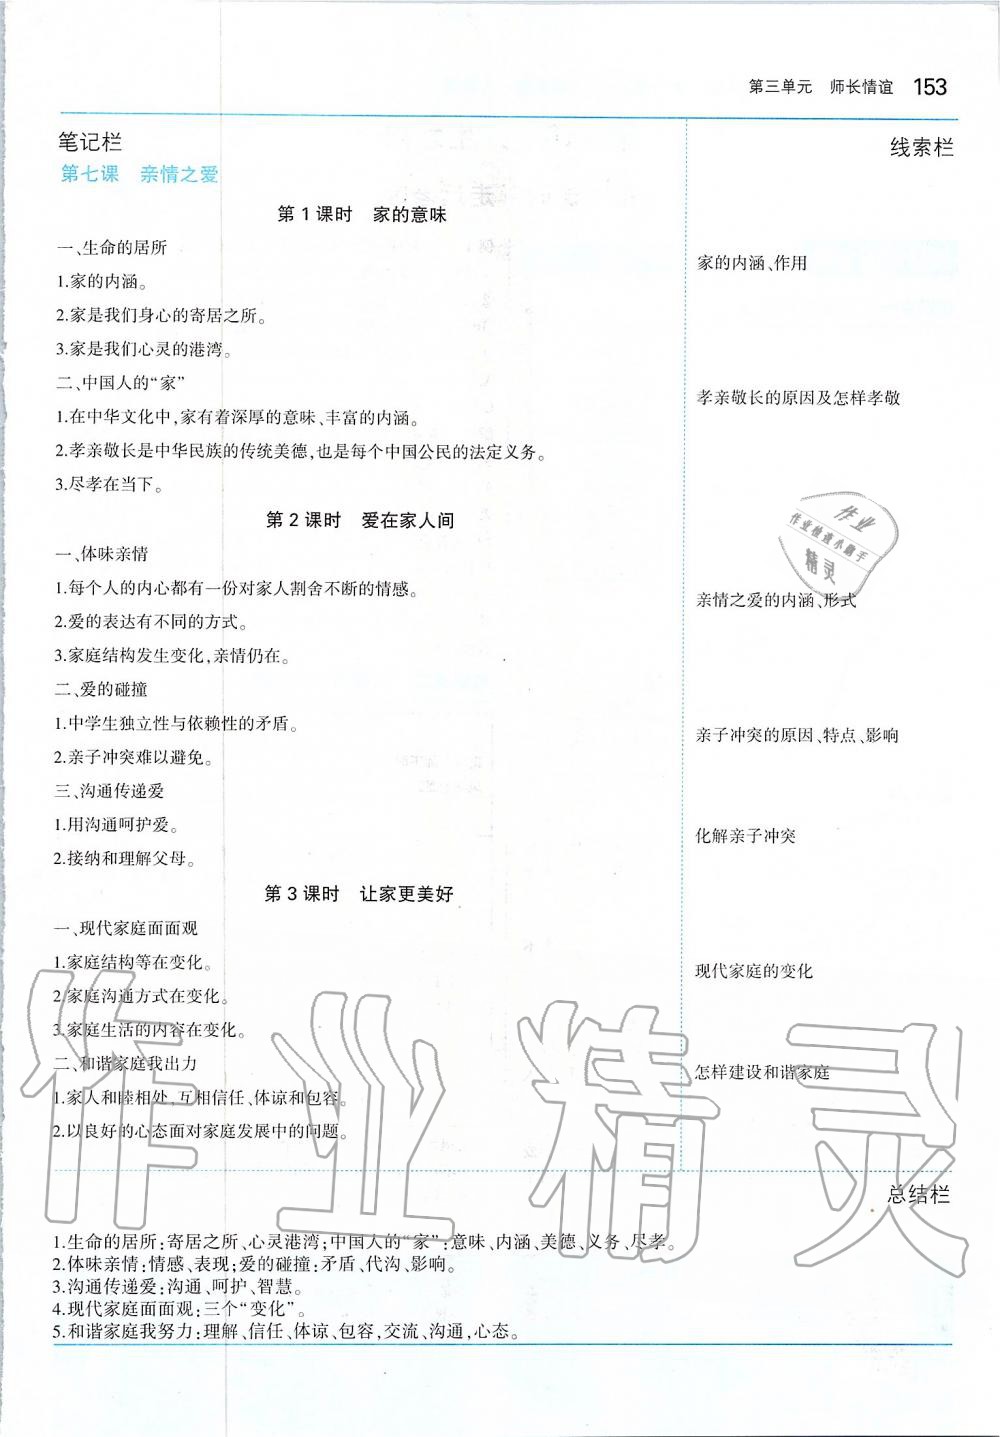 第三单元　师长情谊　153
笔记栏
线索栏
第七课　亲情之爱
第1课时　家的意味
一、生命的居所
家的内涵、作用
1.家的内涵。
2.家是我们身心的寄居之所。
3.家是我们心灵的港湾。
二、中国人的“家”
孝亲敬长的原因及怎样孝敬
1.在中华文化中,家有着深厚的意味、丰富的内涵。
2.孝亲敬长是中华民族的传统美德,也是每个中国公民的法定义务。
3.尽孝在当下。
第2课时　爱在家人间
作业
作业检查小助手
精灵
一、体味亲情
1.每个人的内心都有一份对家人割舍不断的情感。
亲情之爱的内涵、形式
2.爱的表达有不同的方式。
3.家庭结构发生变化,亲情仍在。
二、爱的碰撞
1.中学生独立性与依赖性的矛盾。
亲子冲突的原因、特点、影响
2.亲子冲突难以避免。
三、沟通传递爱
1.用沟通呵护爱。
化解亲子冲突
2.接纳和理解父母。
第3课时　让家更美好
一、现代家庭面面观
1.家庭结构等在变化。
现代家庭的变化
2.家庭沟通方式在变化。
3.家庭生活的内容在变化。
二、和谐家庭我出力
怎样建设和谐家庭
1.家人和睦相处,互相信任、体谅和包容。
2.以良好的心态面对家庭发展中的问题。
作业精灵
总结栏
1.生命的居所:寄居之所、心灵港湾;中国人的“家”:意味、内涵、美德、义务、尽孝。
2.体味亲情:情感、表现;爱的碰撞:矛盾、代沟、影响。
3.沟通传递爱:沟通、呵护、智慧。
4.现代家庭面面观:三个“变化”。
5.和谐家庭我努力:理解、信任、体谅、包容,交流、沟通,心态。